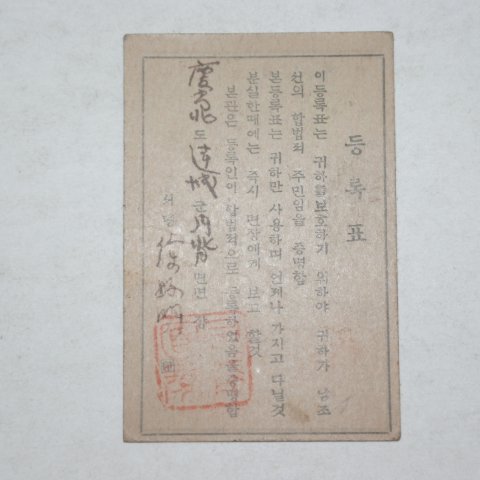 등록표
이등록표는 귀하를보호하기 위하야 귀하가 남조
선의 합법적 주민임을 증명함
본등록표는 귀하만 사용하며 언제나 가지고 다닐것
분실한때에는 즉시 면장에게 보고 할것
본관은 등록인이 합법적으로 등록하였음을증명함
慶北 도 達城 군 月背 면면장
서명 徐